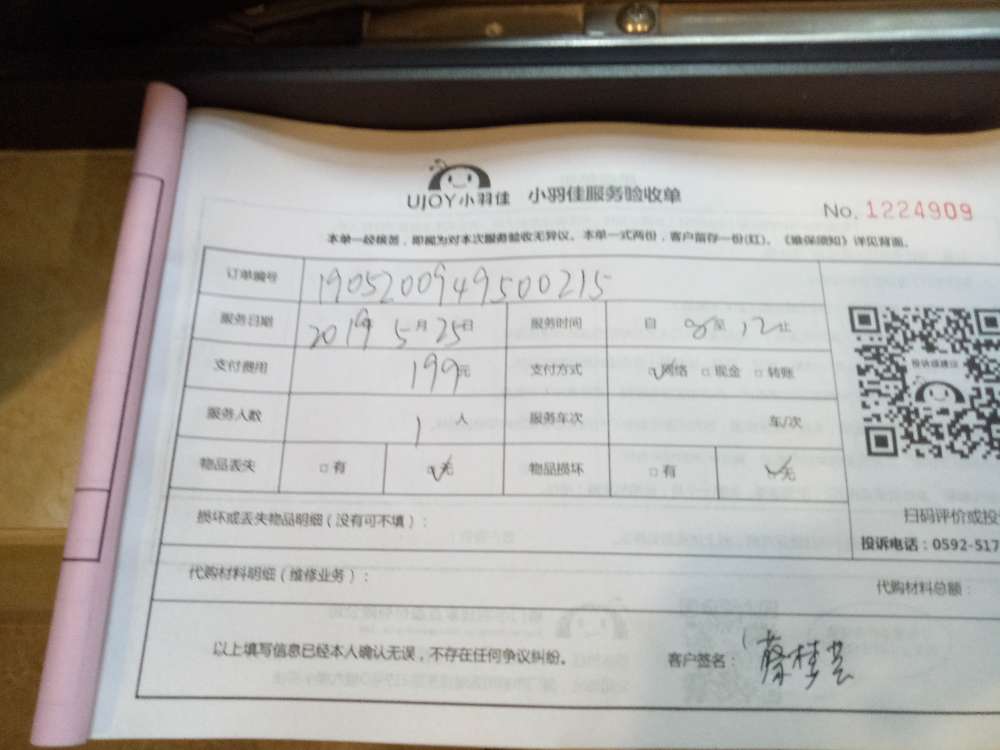 UJOY小羽佳 小羽佳服务验收单
No. 1224909
本单一经核签，即视为对本次服务验收无异议。本单一式两份，客户留存一份(红)。《维保须知》详见背面。
订单编号 190520094950​0215
服务日期 2019年 5月 25日 服务时间 自 8 至 12 止
支付费用 199元 支付方式 ☑网络 □现金 □转账
服务人数 1 人 服务车次 车/次
物品丢失 □有 ☑无 物品损坏 □有 ☑无
投诉或建议
扫码评价或投
损坏或丢失物品明细（没有可不填）：
投诉电话：0592-517
代购材料明细（维修业务）：
代购材料总额：
以上填写信息已经本人确认无误，不存在任何争议纠纷。 客户签名： 蔡桂芸